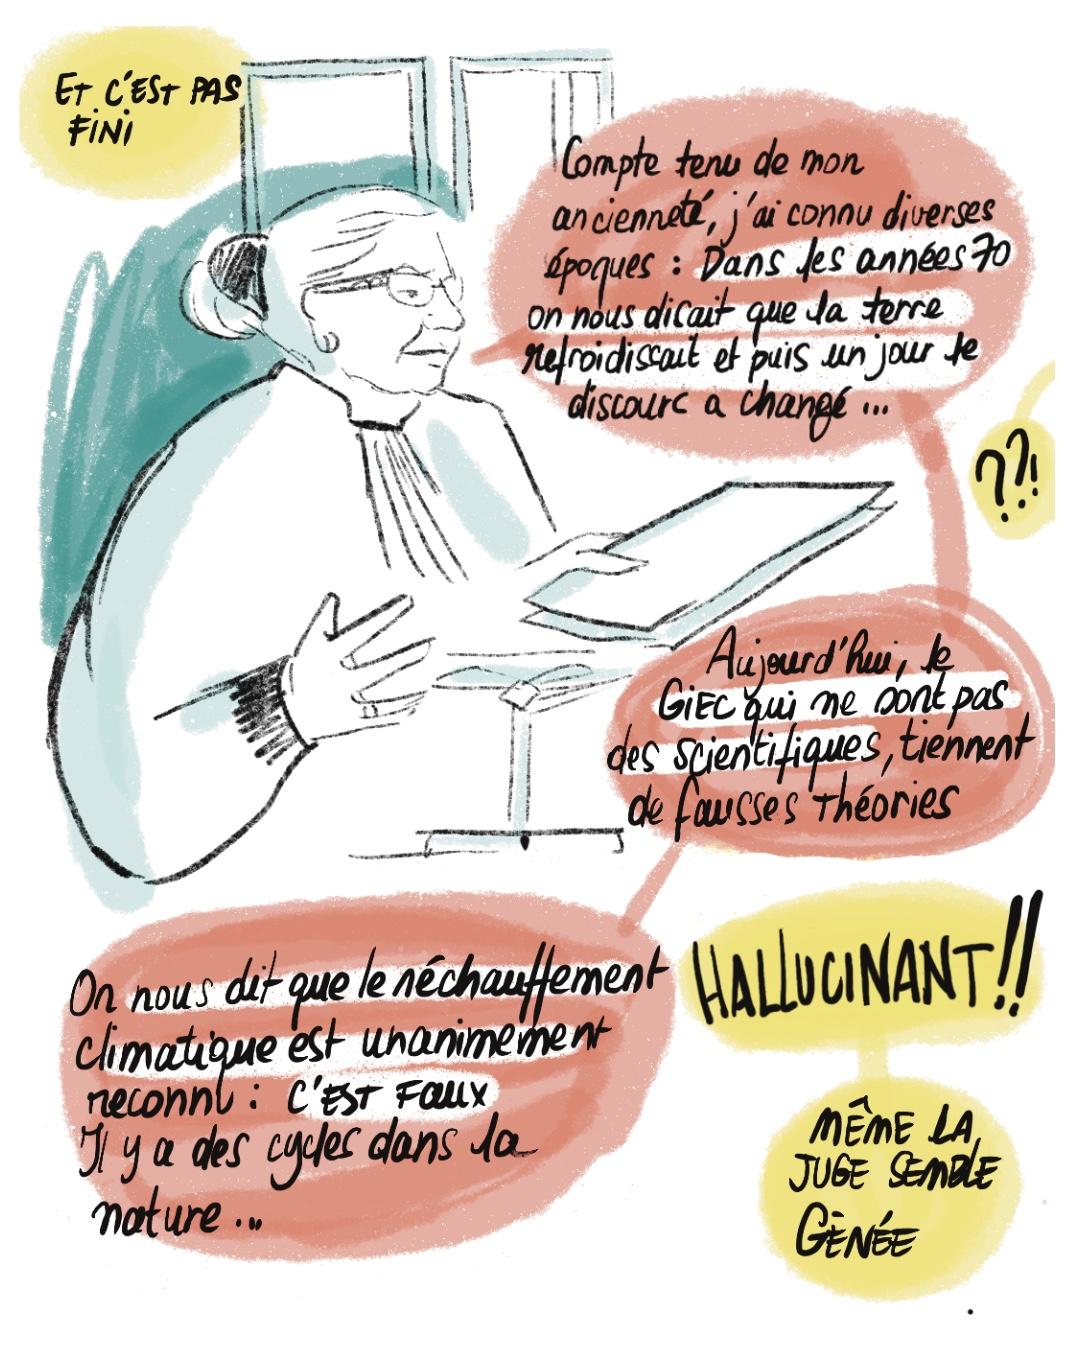 ET C'EST PAS
FiNi
Compte tenu de mon
ancienneté, j'ai connu diverses
époques : Dans les années 70
on nous disait que la terre
refroidissait et puis un jour le
discours a changé ...
??!
Aujourd'hui, le
GiEC qui ne sont pas
des scientifiques, tiennent
de fausses théories
On nous dit que le réchauffement
climatique est unanimement
reconnu : C'EST FAUX
Il y a des cycles dans la
nature ...
HALLUCINANT !!
MÊME LA
JUGE SEMBLE
GÈNÉE